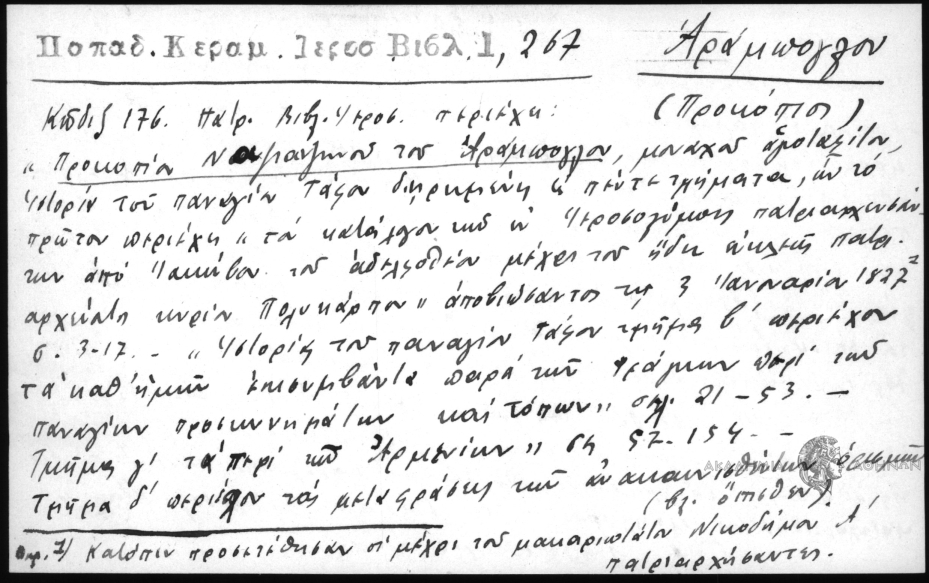 Παπαδ. Κεραμ. Ιεροσ Βιβλ 1, 267
Ἀράμπογλου
(Προκόπιος)
Κῶδιξ 176. Πατρ. Βιβλ. Ἱεροσ. περιέχει:
"Προκοπίου Ναζιανζηνοῦ τοῦ Ἀράμπογλου, μοναχοῦ ἁγιοταφίτου,
Ἱστορία τοῦ παναγίου Τάφου διῃρημένη εἰς πέντε τμήματα, ὧν τὸ
πρῶτον περιέχει "τὸν κατάλογον τῶν ἐν Ἱεροσολύμοις πατριαρχευσάν-
των ἀπὸ Ἰακώβου τοῦ ἀδελφοθέου μέχρι τοῦ ἤδη εὐκλεοῦς πατρι-
άρχου κυρίου Πολυκάρπου" ἀποβιώσαντος τῇ 3 Ἰανουαρίου 1827
σ. 3-17. - "Ἱστορίας τοῦ παναγίου Τάφου τμῆμα β' περιέχον
τὰ καθ' ἡμῶν ἐπισυμβάντα παρὰ τῶν Φράγκων περὶ τῶν
παναγίων προσκυνημάτων καὶ τόπων" σελ. 21-53. -
Τμῆμα γ' τὰ περὶ τῶν Ἀρμενίων" σελ 57-154. -
Τμῆμα δ' περιέχον τὰς μεταφράσεις τῶν ἀνακαινισθέντων ὁρισμῶν
(βλ. ὄπισθεν)
ΑΚΑΔΗΜΙΑ ΑΘΗΝΩΝ
1) Κατόπιν προσετέθησαν οἱ μέχρι τοῦ μακαριωτάτου Νικοδήμου Α'
πατριαρχήσαντες.